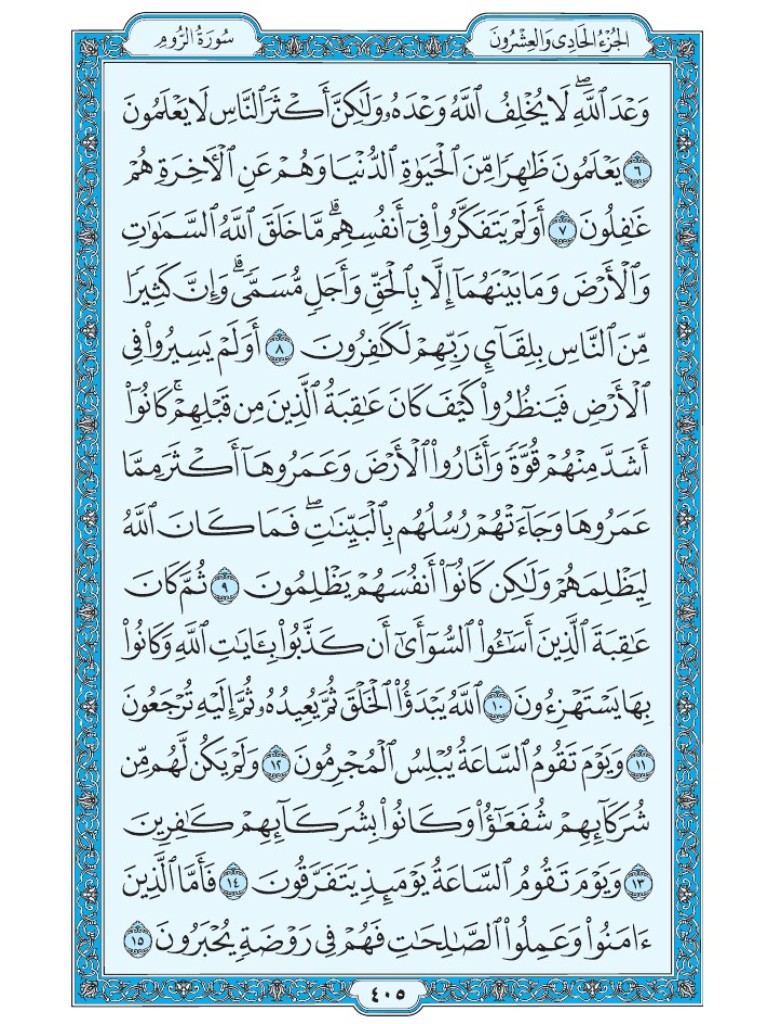 الجُزْءُ الحَادِى وَالعِشْرُونَ
سُورَةُ الرُّومِ
وَعْدَ ٱللَّهِۖ لَا يُخْلِفُ ٱللَّهُ وَعْدَهُۥ وَلَٰكِنَّ أَكْثَرَ ٱلنَّاسِ لَا يَعْلَمُونَ
٦ يَعْلَمُونَ ظَٰهِرٗا مِّنَ ٱلْحَيَوٰةِ ٱلدُّنْيَا وَهُمْ عَنِ ٱلْأٓخِرَةِ هُمْ
غَٰفِلُونَ ٧ أَوَلَمْ يَتَفَكَّرُوا۟ فِىٓ أَنفُسِهِمۗ مَّا خَلَقَ ٱللَّهُ ٱلسَّمَٰوَٰتِ
وَٱلْأَرْضَ وَمَا بَيْنَهُمَآ إِلَّا بِٱلْحَقِّ وَأَجَلٖ مُّسَمّٗىۗ وَإِنَّ كَثِيرٗا
مِّنَ ٱلنَّاسِ بِلِقَآئِ رَبِّهِمْ لَكَٰفِرُونَ ٨ أَوَلَمْ يَسِيرُوا۟ فِى
ٱلْأَرْضِ فَيَنظُرُوا۟ كَيْفَ كَانَ عَٰقِبَةُ ٱلَّذِينَ مِن قَبْلِهِمْۚ كَانُوٓا۟
أَشَدَّ مِنْهُمْ قُوَّةٗ وَأَثَارُوا۟ ٱلْأَرْضَ وَعَمَرُوهَآ أَكْثَرَ مِمَّا
عَمَرُوهَا وَجَآءَتْهُمْ رُسُلُهُم بِٱلْبَيِّنَٰتِۖ فَمَا كَانَ ٱللَّهُ
لِيَظْلِمَهُمْ وَلَٰكِن كَانُوٓا۟ أَنفُسَهُمْ يَظْلِمُونَ ٩ ثُمَّ كَانَ
عَٰقِبَةَ ٱلَّذِينَ أَسَٰٓـُٔوا۟ ٱلسُّوٓأَىٰٓ أَن كَذَّبُوا۟ بِـَٔايَٰتِ ٱللَّهِ وَكَانُوا۟
بِهَا يَسْتَهْزِءُونَ ١٠ ٱللَّهُ يَبْدَؤُا۟ ٱلْخَلْقَ ثُمَّ يُعِيدُهُۥ ثُمَّ إِلَيْهِ تُرْجَعُونَ
١١ وَيَوْمَ تَقُومُ ٱلسَّاعَةُ يُبْلِسُ ٱلْمُجْرِمُونَ ١٢ وَلَمْ يَكُن لَّهُم مِّن
شُرَكَآئِهِمْ شُفَعَٰٓؤُا۟ وَكَانُوا۟ بِشُرَكَآئِهِمْ كَٰفِرِينَ
١٣ وَيَوْمَ تَقُومُ ٱلسَّاعَةُ يَوْمَئِذٖ يَتَفَرَّقُونَ ١٤ فَأَمَّا ٱلَّذِينَ
ءَامَنُوا۟ وَعَمِلُوا۟ ٱلصَّٰلِحَٰتِ فَهُمْ فِى رَوْضَةٖ يُحْبَرُونَ ١٥
٤٠٥